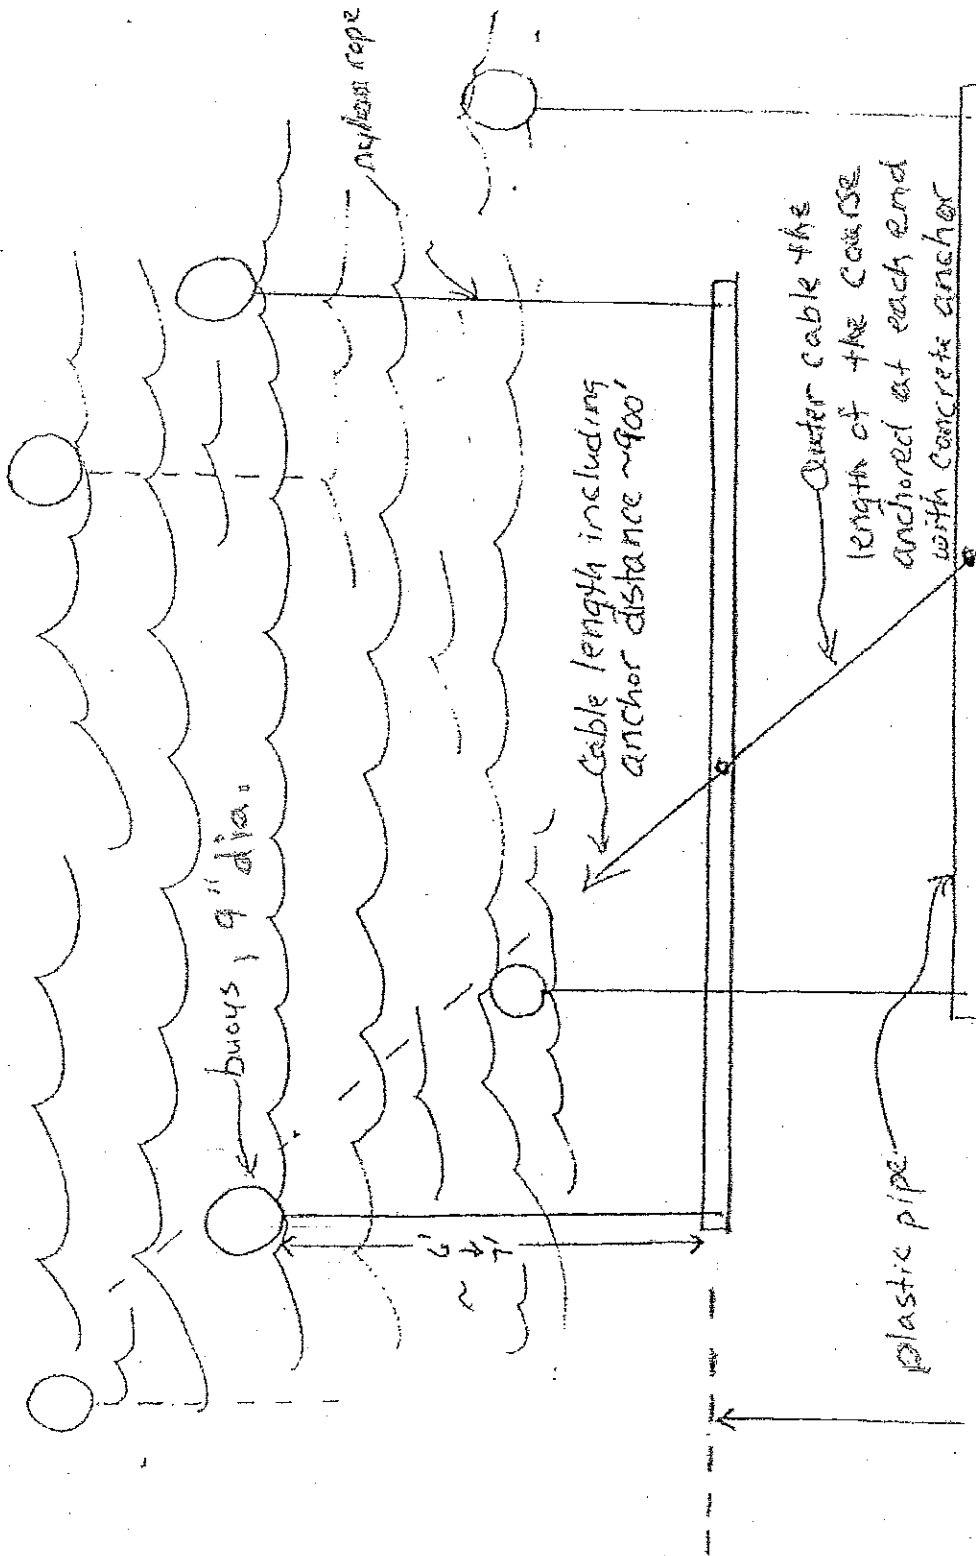 nylon rope
buoys, 9" dia.
Cable length including
anchor distance ~900'
cable the
length of the coarse
anchored at each end
with concrete anchor
plastic pipe